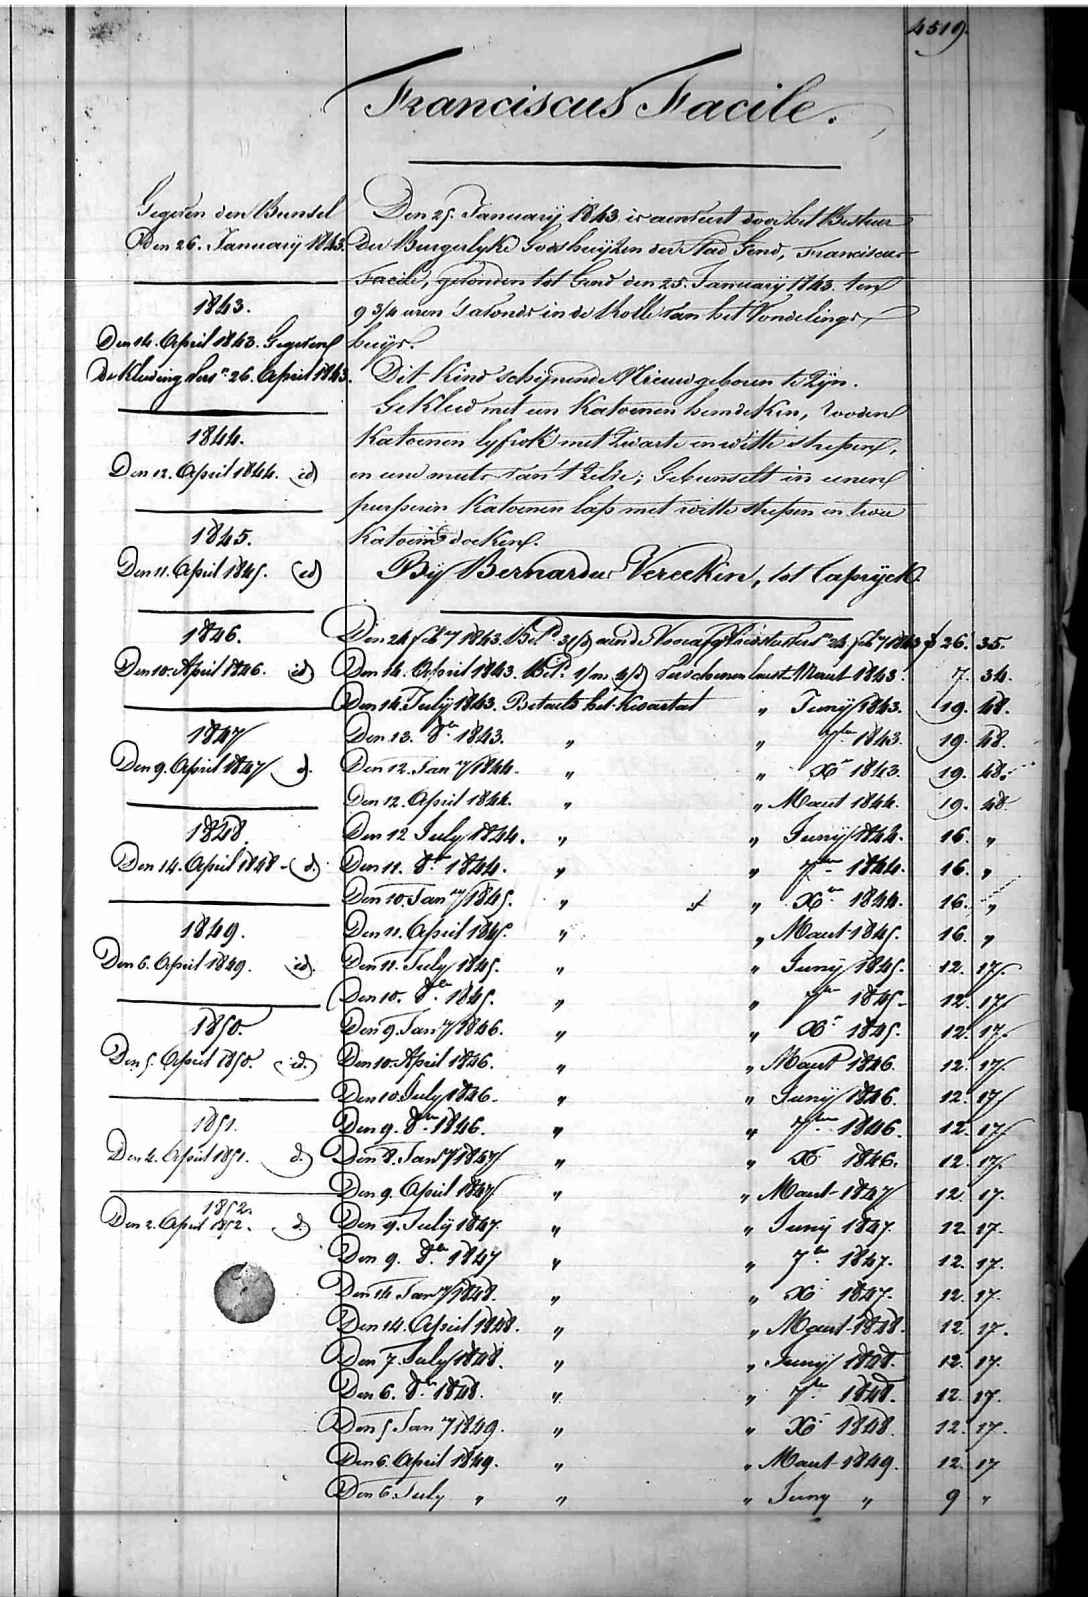 4519.
Franciscus Facile.
Gegeven den Bunsel
Den 26. Januarij 1843.
1843.
Den 14. April 1843. Gegeven
de Kleeding 26. April 1843.
1844.
Den 12. April 1844. id
1845.
Den 11. April 1845. id
1846.
Den 10. April 1846. id
1847
Den 9. April 1847 d.
1848.
Den 14. April 1848 - d.
1849.
Den 6. April 1849. id.
1850.
Den 5. April 1850. id.
1851.
Den 4. April 1851. d.
1852.
Den 2. April 1852. d.
Den 25. Januarij 1843 is aenveert door het Bestuer
Der Burgerlyke Godshuijzen der Stad Gend, Franciscus
Facile, gevonden tot Gend den 25. Januarij 1843. ten
9 3/4 uren 's avonds in de Rolle van het Vondelings
huijs.
Dit Kind schijnende Nieuw geboren te Zijn.
Gekleed met een Katoenen hemdeken, rooden
Katoenen lyfrok met Zwarte en witte strepen,
en eene muts van 't Zelve; Gebunselt in eenen
purperen Katoenen lap met witte strepen en twee
Katoene doeken.
Bij Bernardus Vereeken, tot Caprijck.
Den 24 1843. 1843 f 26. 35.
Den 14. April 1843. verschenen laest Maart 1843. 7. 34.
Den 14 Julij 1843. Betaeld het Kwartael " Junij 1843. 19. 48.
Den 13. 8er 1843. " " 7ber 1843. 19. 48.
Den 12. Jan 1844. " " Xr 1843. 19. 48.
Den 12. April 1844. " " Maart 1844. 19. 48
Den 12 July 1844. " " Junij 1844. 16. "
Den 11. 8er 1844. " " 7ber 1844. 16. "
Den 10. Jan 1845. " " Xer 1844. 16. "
Den 11. April 1845. " " Maart 1845. 16. "
Den 11. July 1845. " " Junij 1845. 12. 17.
Den 10. 8er 1845. " " 7ber 1845. 12. 17
Den 9. Jan 1846. " " Xr 1845. 12. 17.
Den 10. April 1846. " " Maart 1846. 12. 17.
Den 10. July 1846. " " Junij 1846. 12. 17
Den 9. 8er 1846. " " 7ber 1846. 12. 17
Den 8. Jan 1847 " " X 1846. 12. 17.
Den 9. April 1847. " " Maart 1847 12. 17.
Den 9. July 1847. " " Junij 1847. 12. 17.
Den 9. 8er 1847 " " 7er 1847. 12. 17.
Den 14 Jan 1848. " " X 1847. 12. 17.
Den 14. April 1848. " " Maart 1848. 12. 17.
Den 7. July 1848. " " Junij 1848. 12. 17.
Den 6. 8er 1848. " " 7er 1848. 12. 17.
Den 5 Jan 1849. " " Xr 1848. 12. 17.
Den 6. April 1849. " " Maart 1849. 12. 17
Den 6. July " " " Juny " 9 "